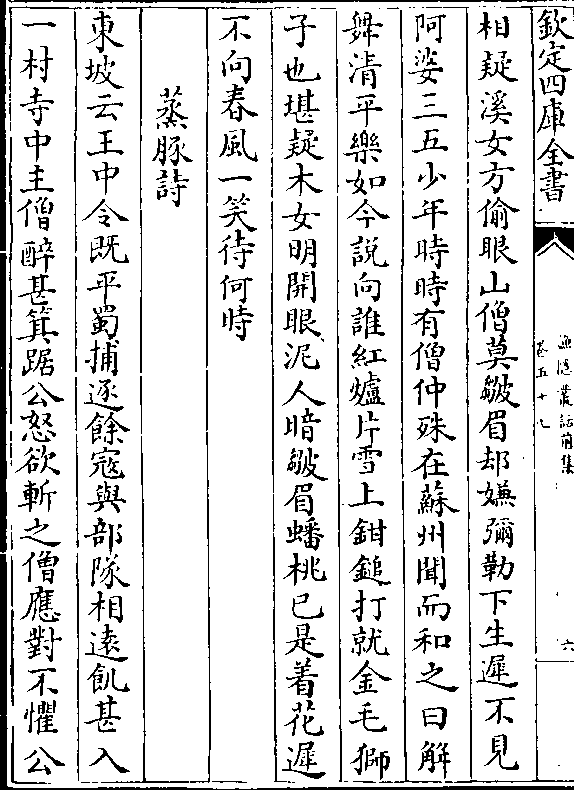 欽定四庫全書
漁隱叢話前集
卷五十九
六
相疑溪女方偷眼山僧莫皺眉却嫌彌勒下生遲不見
阿婆三五少年時時有僧仲殊在蘇州聞而和之曰解
舞清平樂如今說向誰紅爐片雪上鉗鎚打就金毛獅
子也堪疑木女明開眼泥人暗皺眉蟠桃已是着花遲
不向春風一笑待何時
蒸豚詩
東坡云王中令既平蜀捕逐餘寇與部隊相遠飢甚入
一村寺中主僧醉甚箕踞公怒欲斬之僧應對不懼公